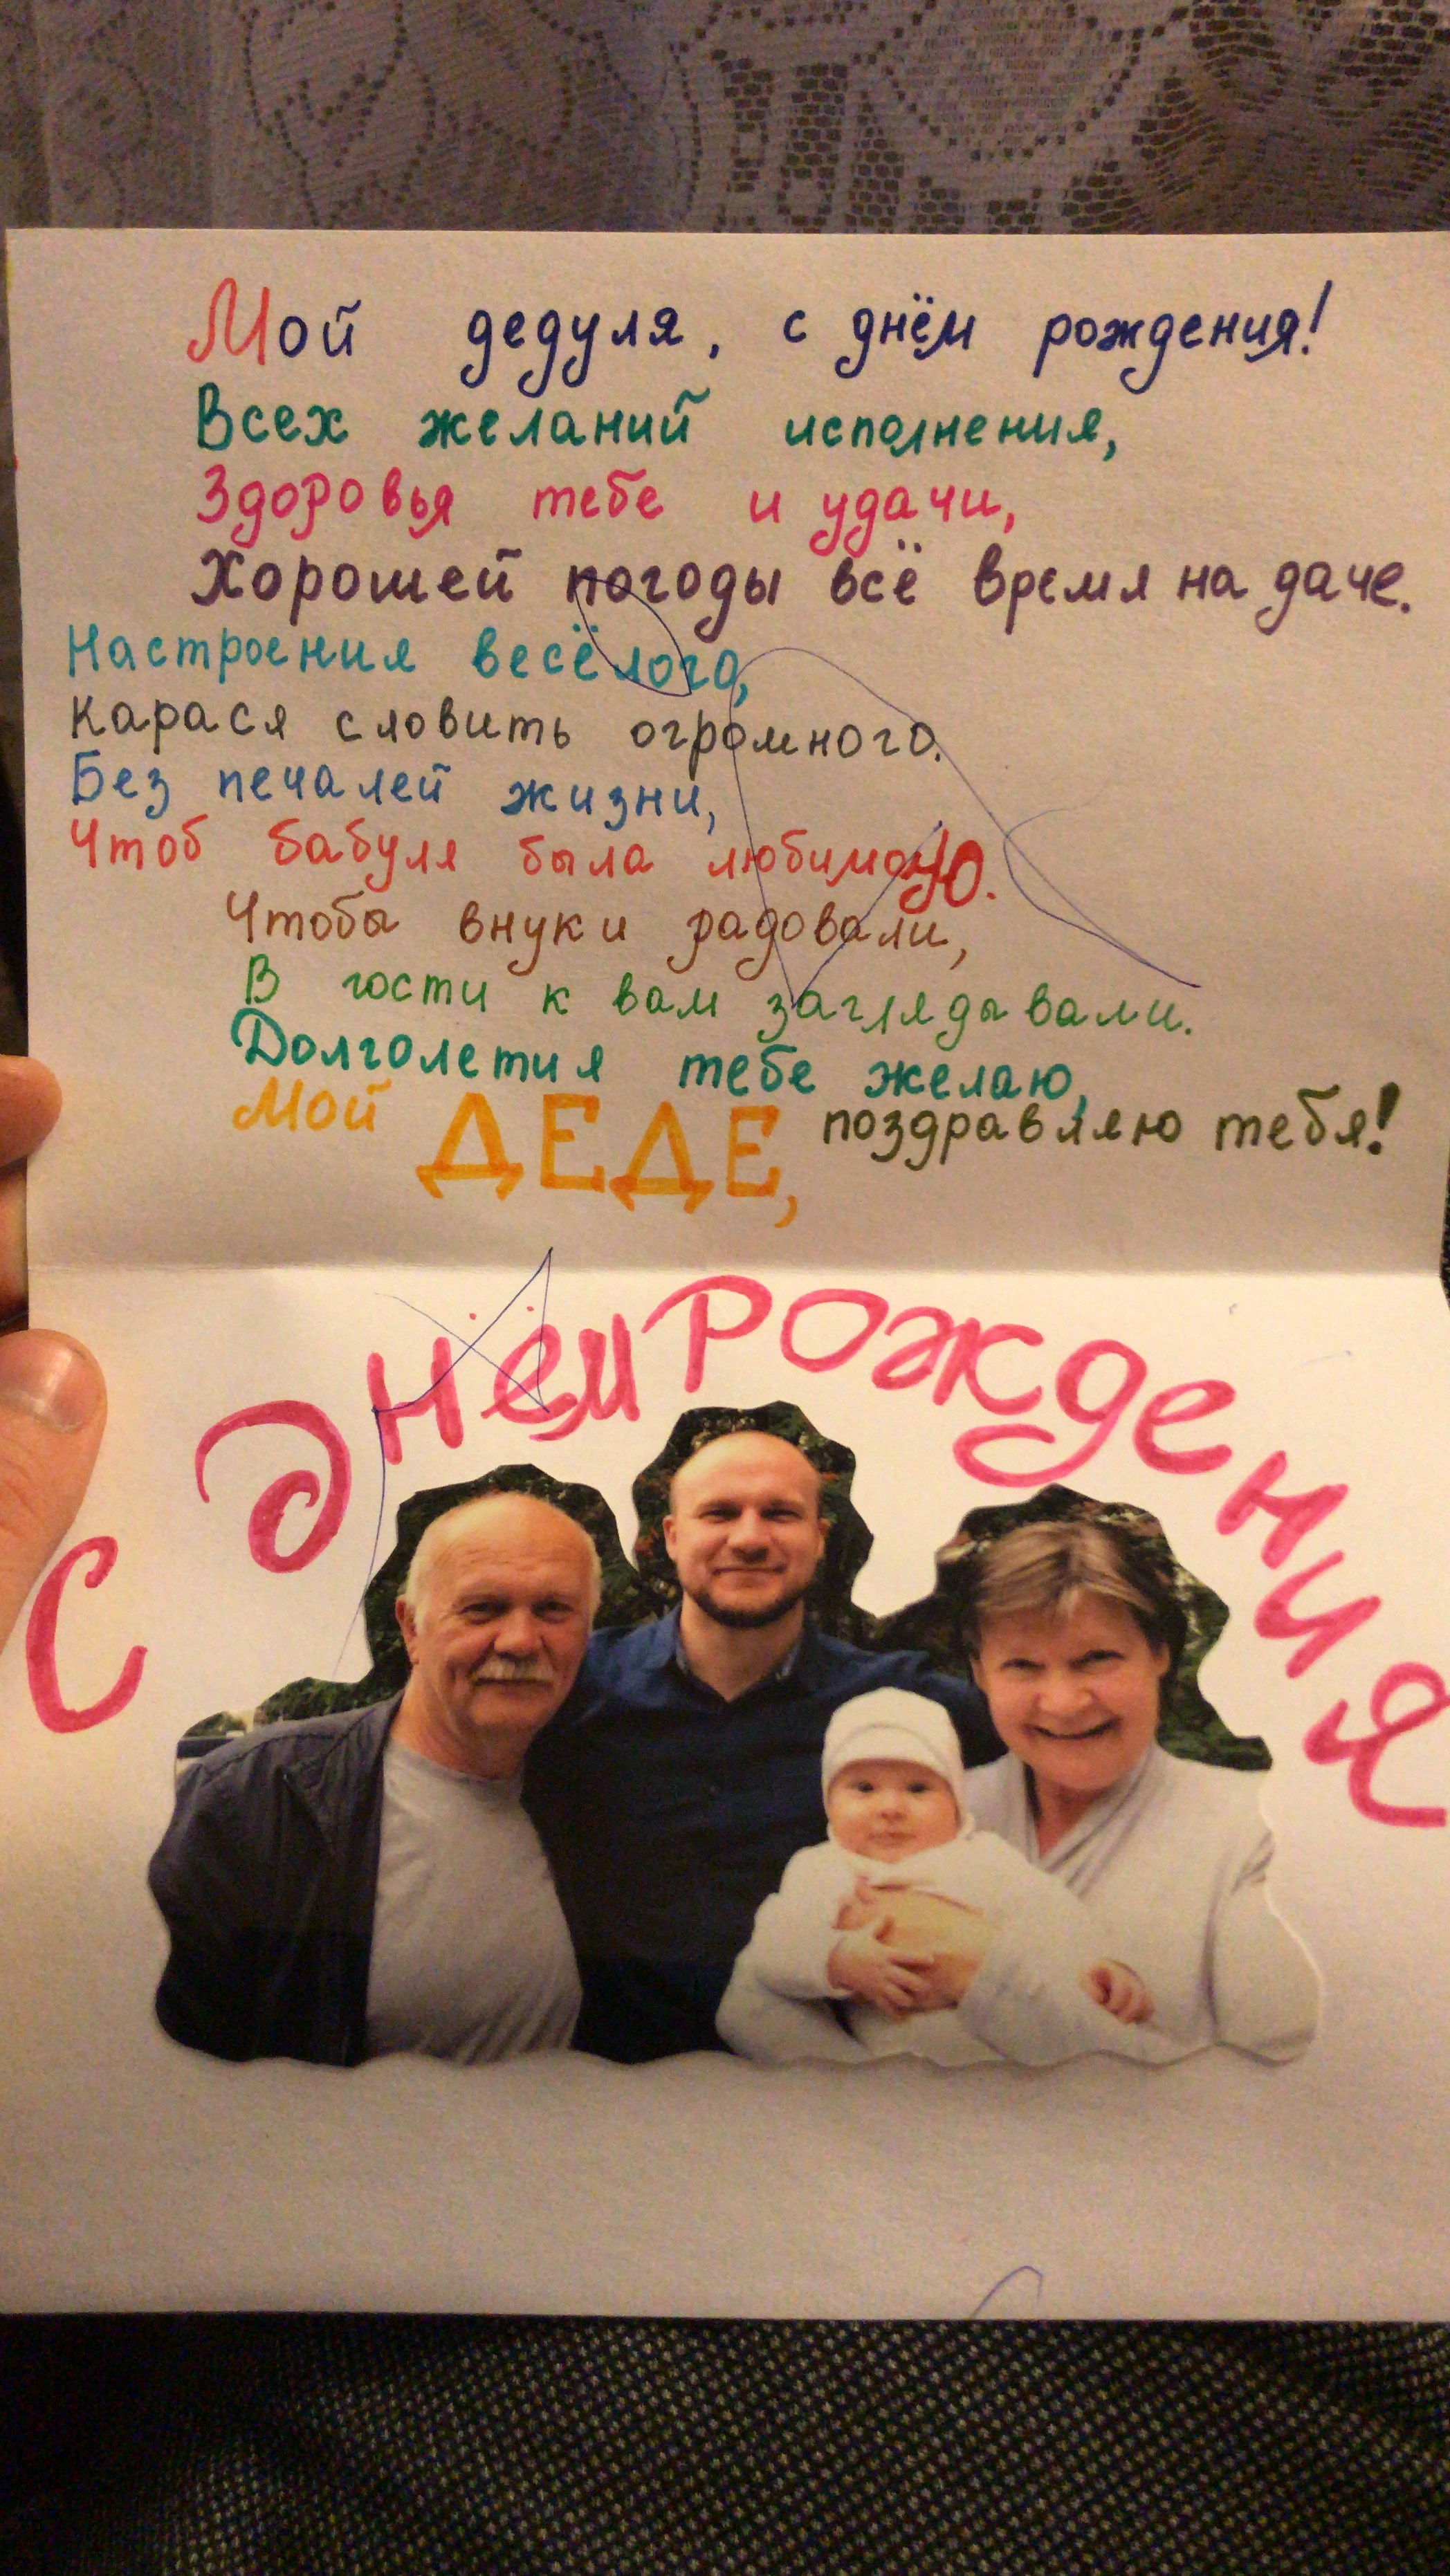 Мой дедуля, с днём рождения!
Всех желаний исполнения,
Здоровья тебе и удачи,
Хорошей погоды всё время на даче.
Настроения весёлого,
Карася словить огромного.
Без печалей жизни,
Чтоб бабуля была любимою.
Чтобы внуки радовали,
В гости к вам заглядывали.
Долголетия тебе желаю,
Мой ДЕДЕ, поздравляю тебя!
С днём рождения